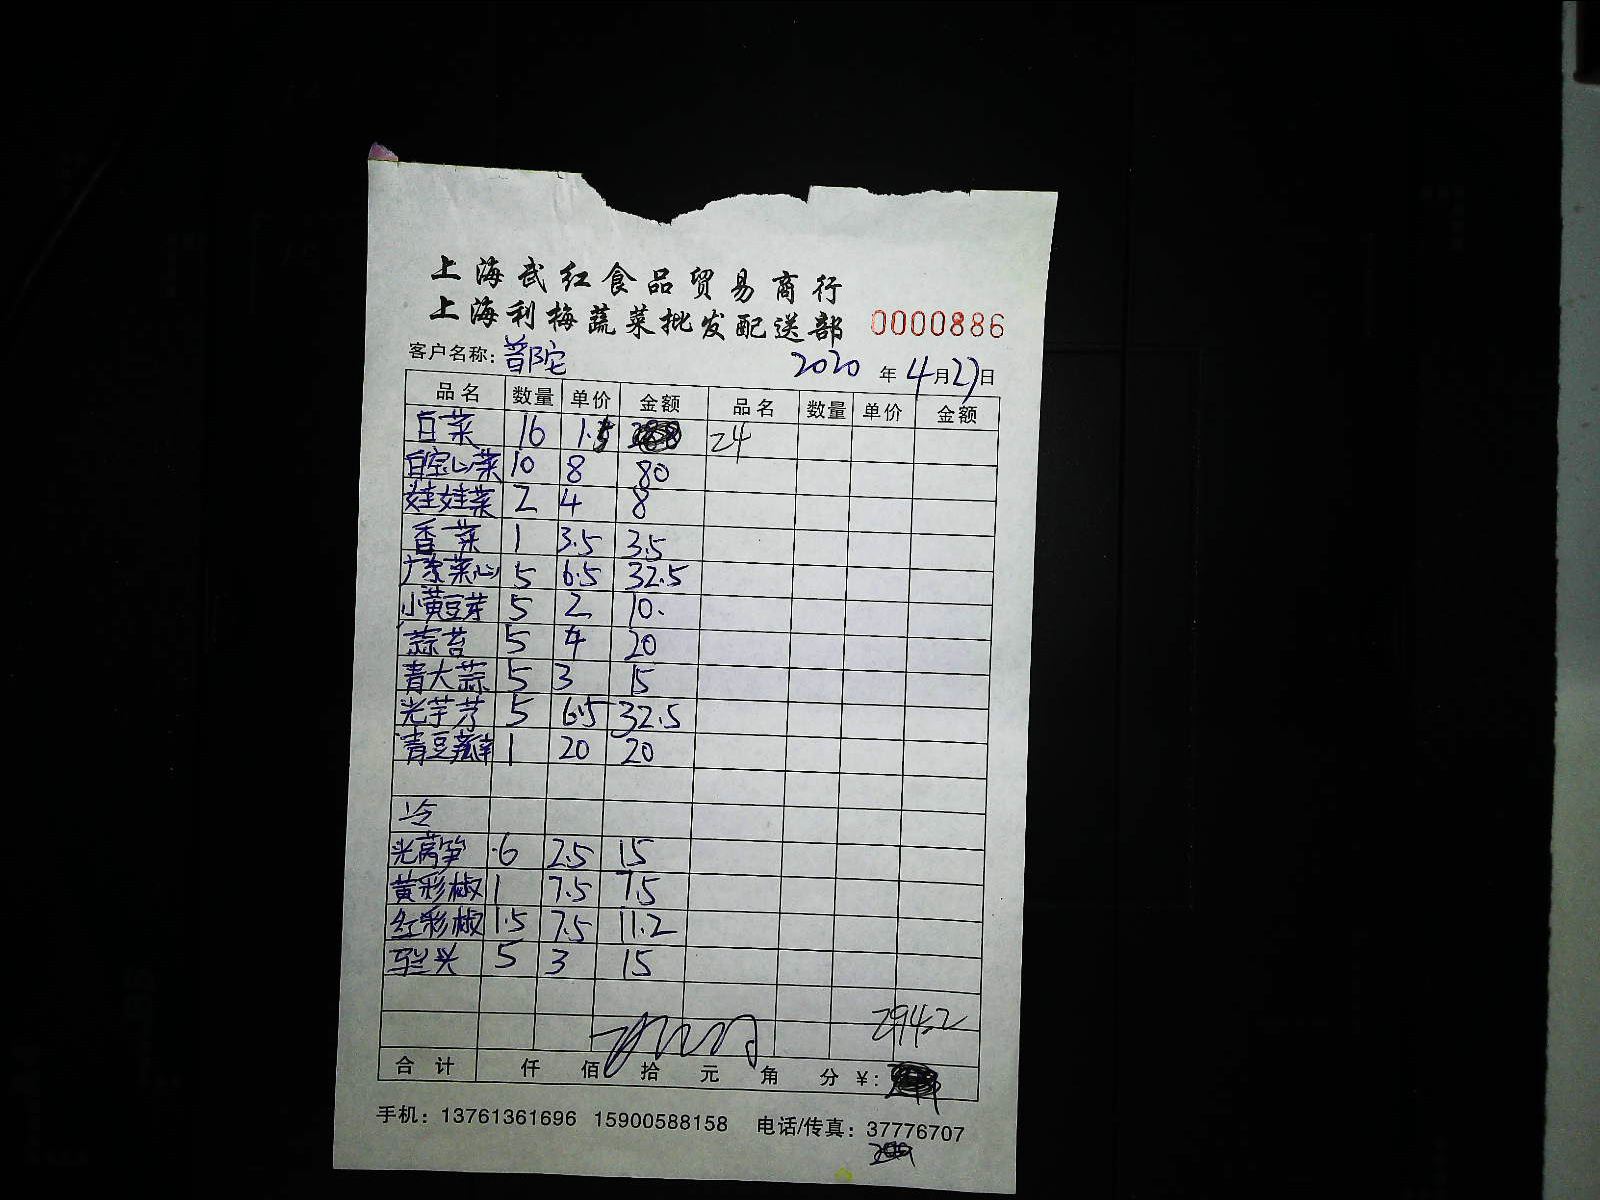 上海武红食品贸易商行
上海利梅蔬菜批发配送部 0000886
客户名称：普陀 2020年4月27日
品名 数量 单价 金额 品名 数量 单价 金额
白菜 16 1.5 24
白空心菜 10 8 80
娃娃菜 2 4 8
香菜 1 3.5 3.5
广东菜心 5 6.5 32.5
小黄豆芽 5 2 10.
蒜苔 5 4 20
青大蒜 5 3 15
光芋艿 5 6.5 32.5
青豆瓣 1 20 20
冷
光莴笋 6 2.5 15
黄彩椒 1 7.5 7.5
红彩椒 1.5 7.5 11.2
马兰头 5 3 15
294.2
合计 仟 佰 拾 元 角 分 ¥：
手机：13761361696 15900588158 电话/传真：37776707